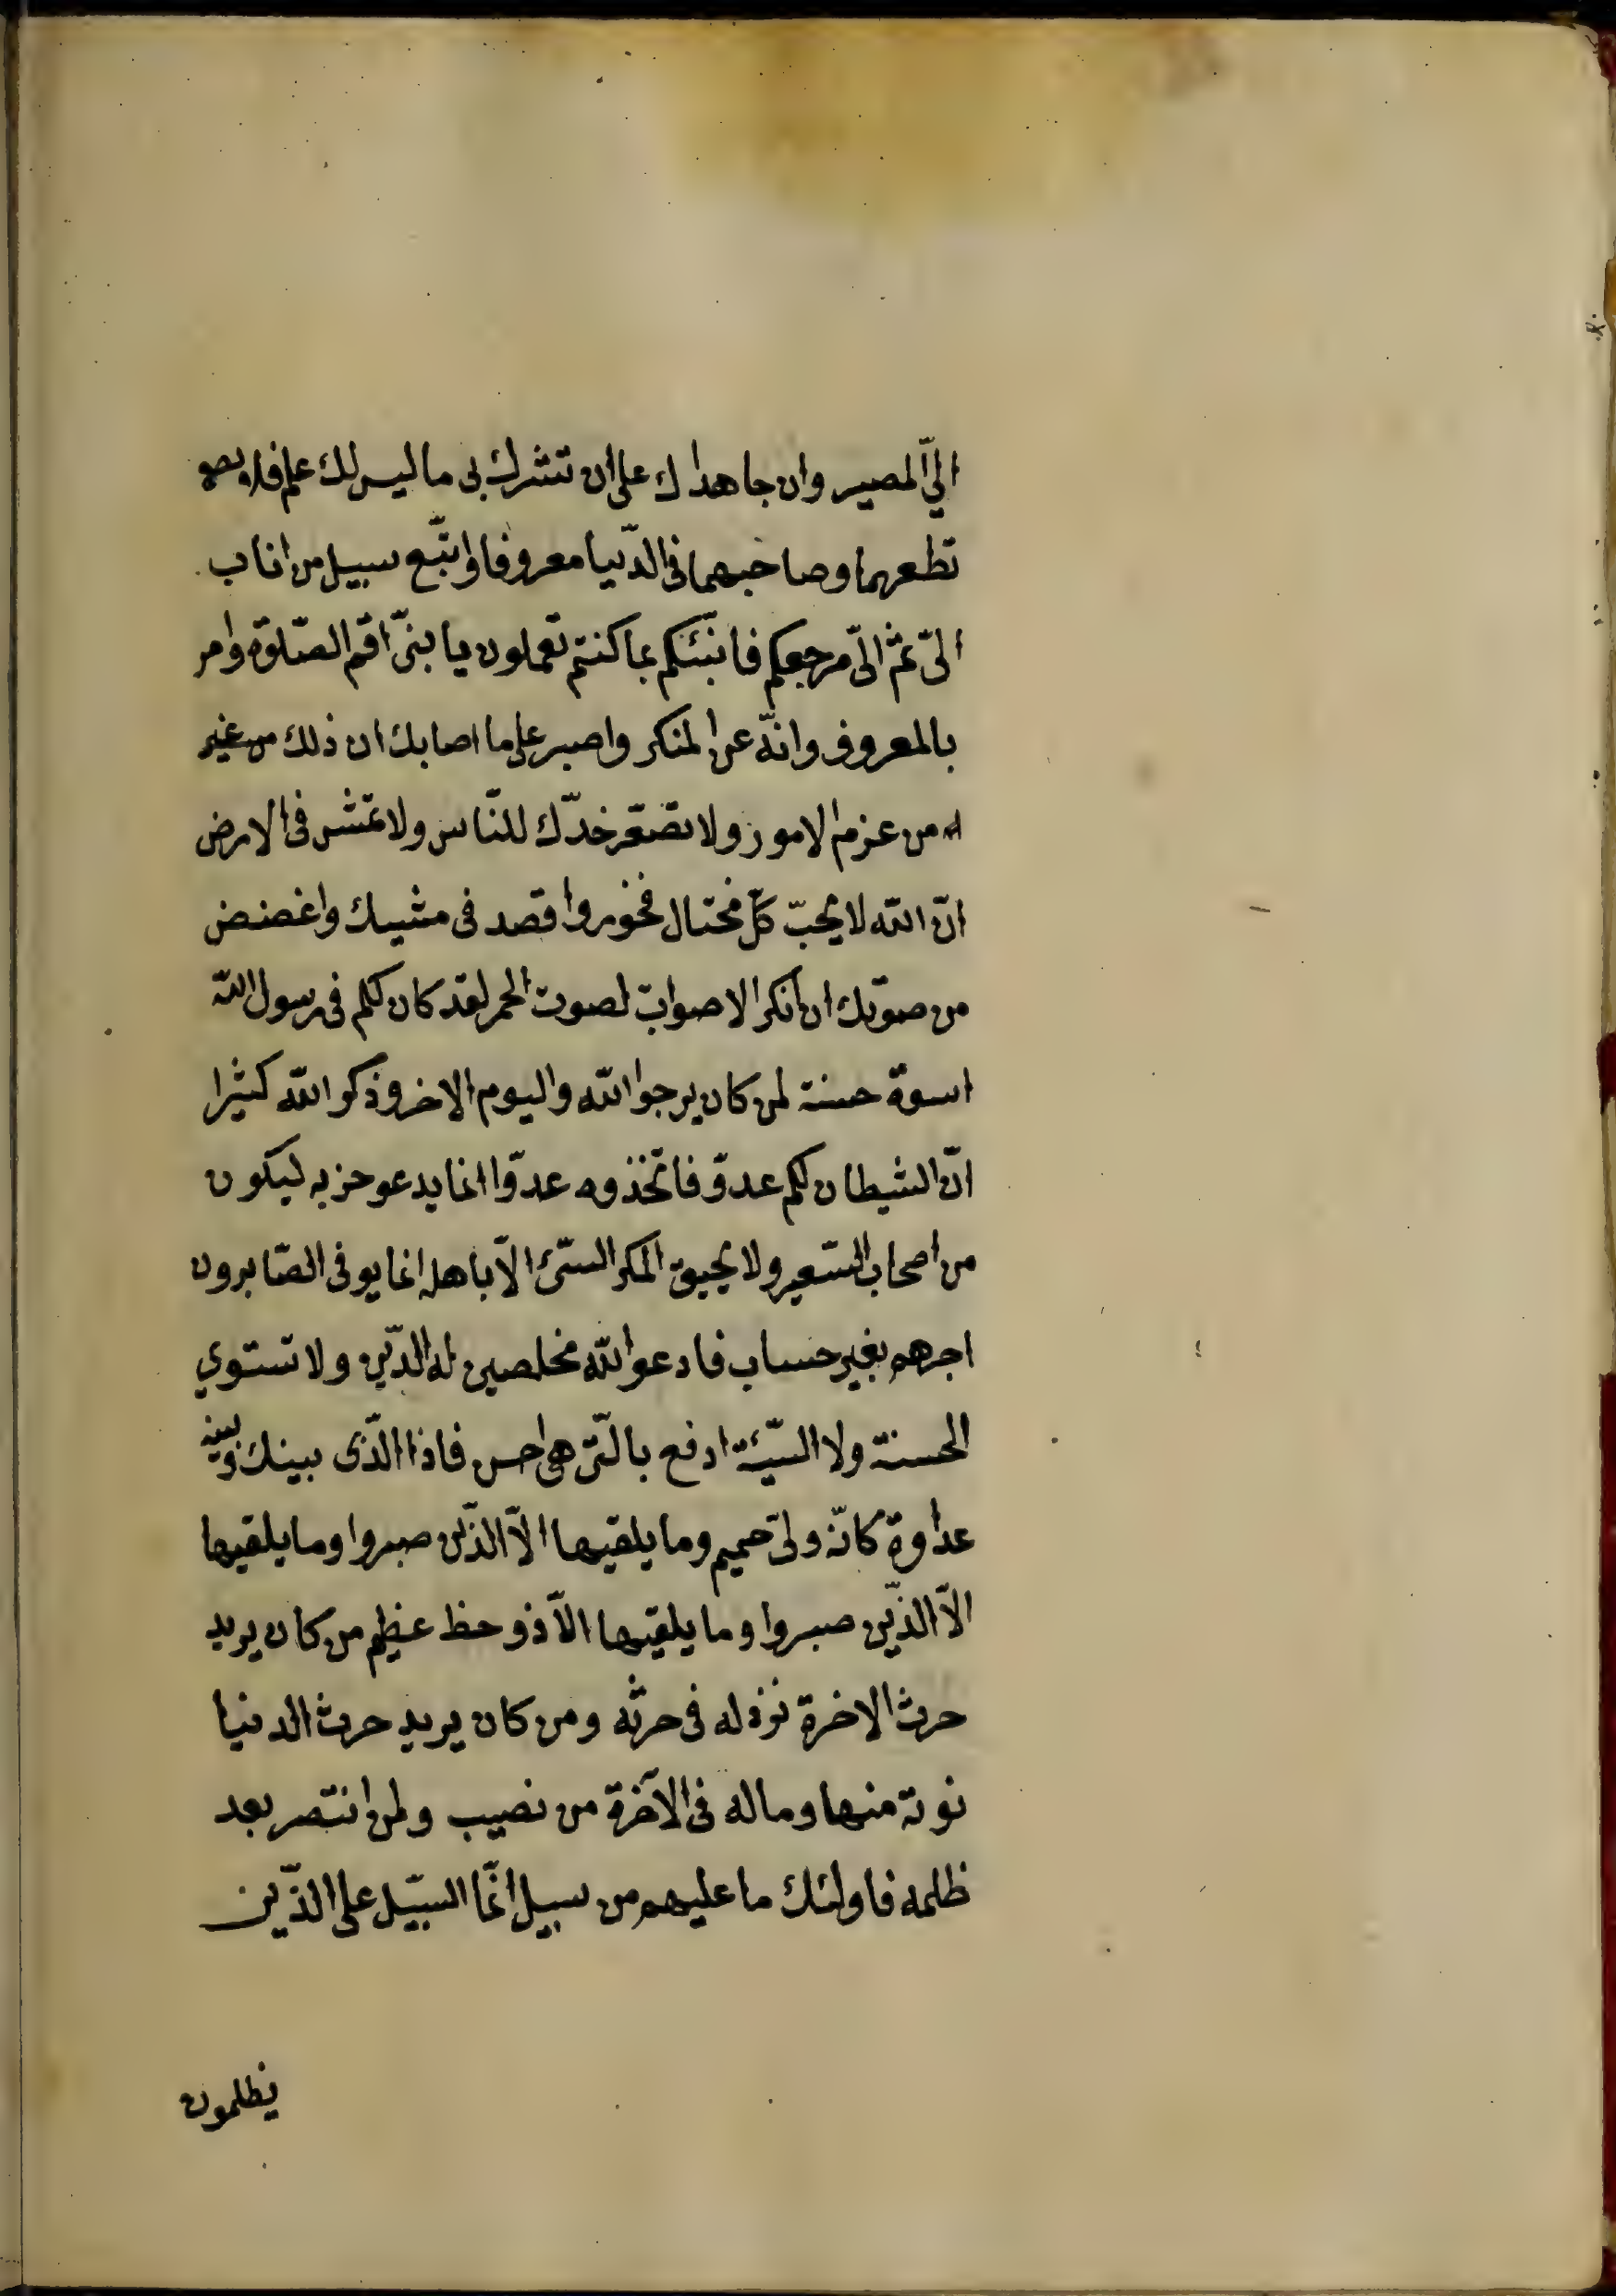 اليّ المصير وان جاهداك على ان تشرك بى ما ليس لك علم فلا
تطعهما وصاحبهما فى الدّنيا معروفا واتّبع سبيل من اناب
الىّ ثمّ الىّ مرجعكم فانبّئكم بما كنتم تعملون يا بنىّ اقم الصّلوة وامر
بالمعروف وانّه عن المنكر واصبر على ما اصابك ان ذلك من غير
من عزم الامور ولا تصعّر خدّك للنّاس ولا تمش فى الارض
انّ الله لا يحبّ كلّ مختال فخور واقصد فى مشيك واغضض
من صوتك ان انكر الاصوات لصوت الحمر لقد كان لكم فى رسول الله
اسوة حسنة لمن كان يرجوا الله واليوم الاخر وذكر الله كثيرا
انّ الشيطان لكم عدوّ فاتّخذوه عدوّا انما يدعو حزبه ليكون
من اصحاب السّعير ولا يحيق المكر السّئ الّا باهله انما يوفى الصّابرون
اجرهم بغير حساب فادعوا الله مخلصين له الدّين ولا تستوي
الحسنة ولا السّيئة ادفع بالّتى هى احسن فاذا الّذى بينك وبينه
عداوة كانّه ولىّ حميم وما يلقيها الّا الذّين صبروا وما يلقيها
الّا الذّين صبروا وما يلقيها الّا ذو حظ عظيم من كان يريد
حرث الاخرة نزد له فى حرثه ومن كان يريد حرث الدنيا
نوته منها وماله فى الآخرة من نصيب ولمن انتصر بعد
ظلمه فاولئك ما عليهم من سبيل انّما السّبيل على الذّين
يظلمون